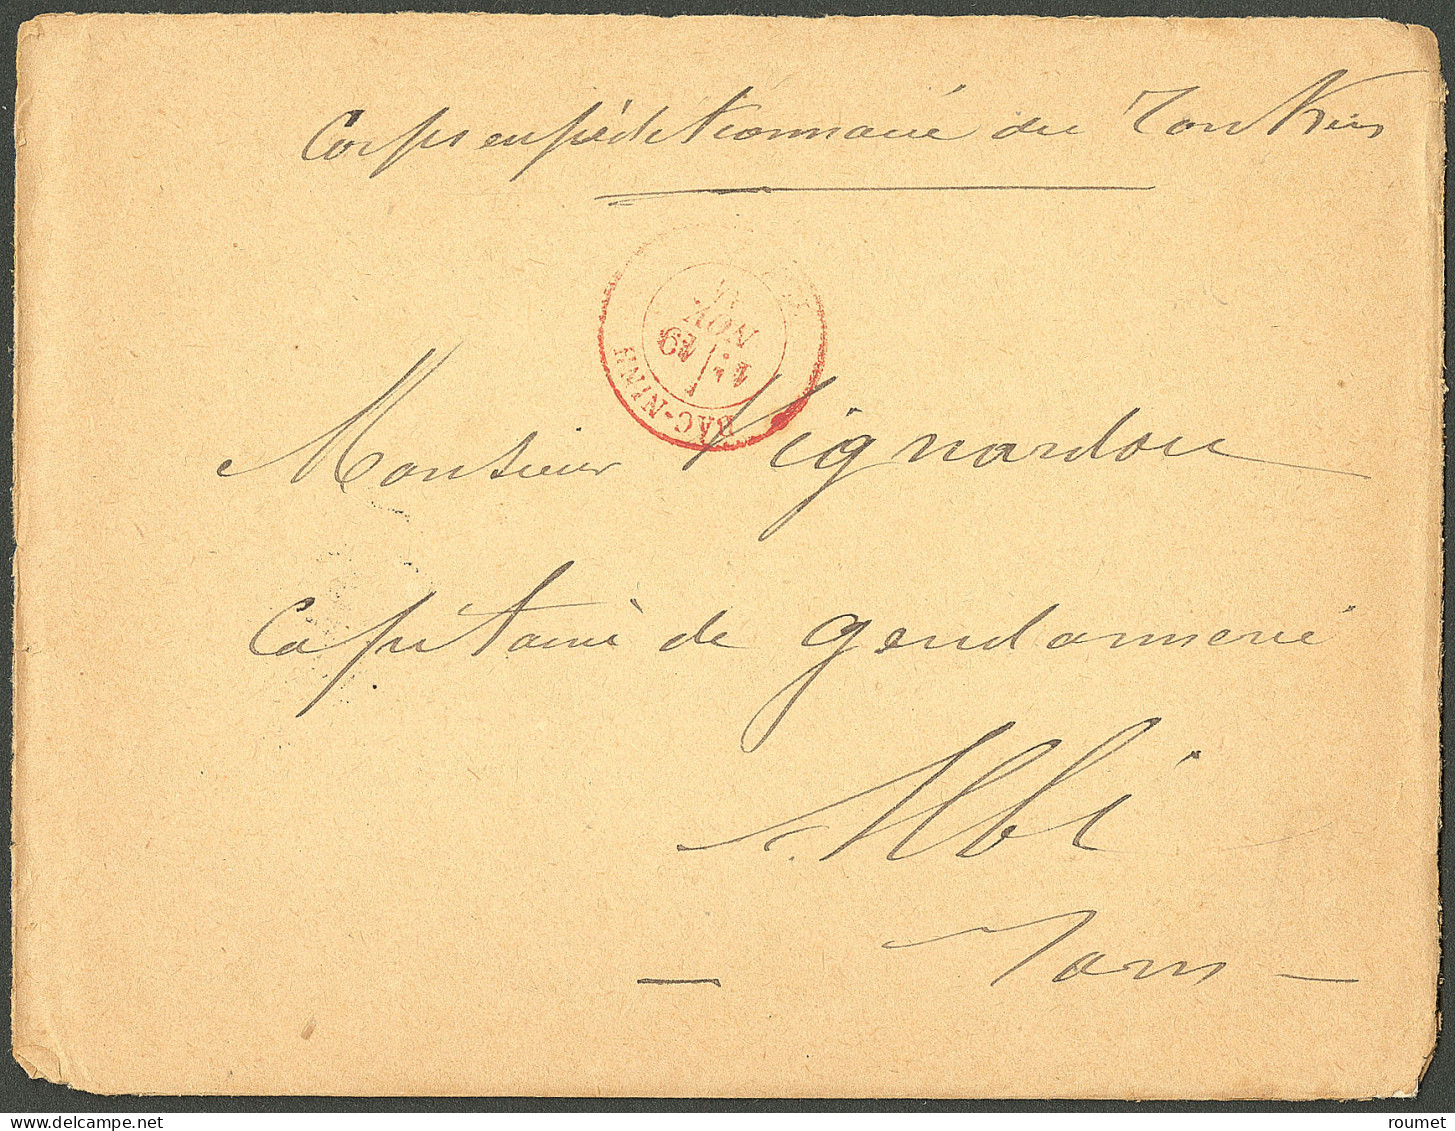 Corps expéditionnaire du Tonkin
BAC-NINH
NOV
Monsieur Vignardou
Capitaine de gendarmerie
Albi
Tarn
www.delcampe.net
roumet